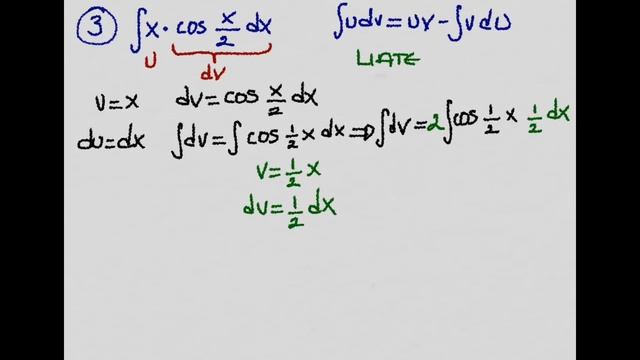 ③ ∫x·cos x/2 dx   ∫udv=uv-∫vdu
u   dv   LIATE
u=x   dv=cos x/2 dx
du=dx   ∫dv=∫cos 1/2 x dx ⇒ ∫dv=2∫cos 1/2 x 1/2 dx
v=1/2 x
dv=1/2 dx